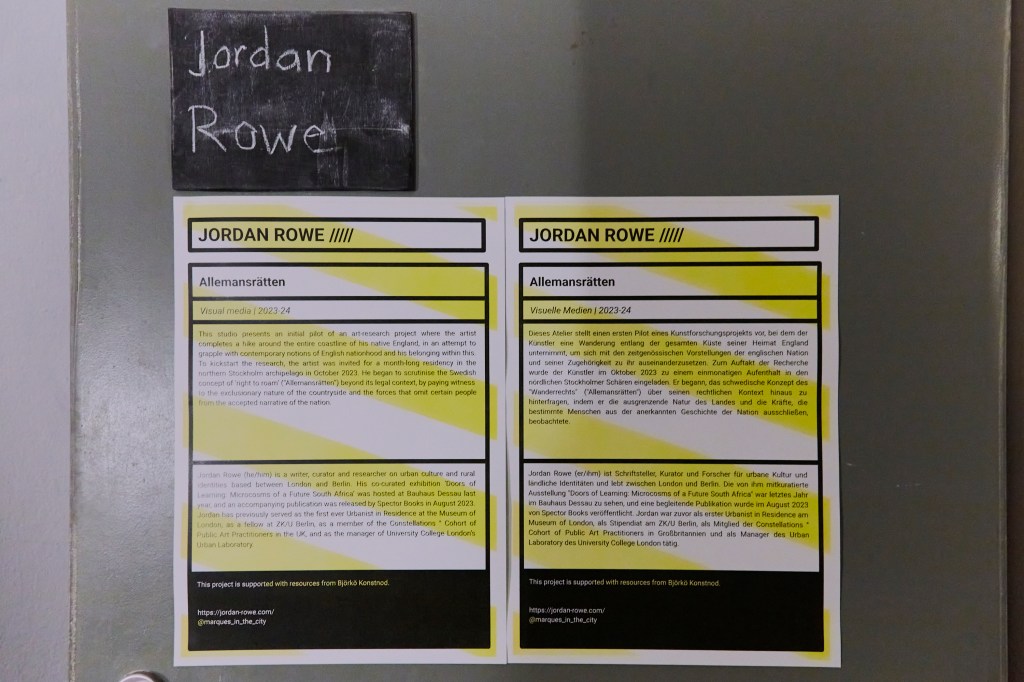 Jordan
Rowe
JORDAN ROWE /////
Allemansrätten
Visual media | 2023-24
This studio presents an initial pilot of an art-research project where the artist
completes a hike around the entire coastline of his native England, in an attempt to
grapple with contemporary notions of English nationhood and his belonging within this.
To kickstart the research, the artist was invited for a month-long residency in the
northern Stockholm archipelago in October 2023. He began to scrutinise the Swedish
concept of 'right to roam' ("Allemansrätten") beyond its legal context, by paying witness
to the exclusionary nature of the countryside and the forces that omit certain people
from the accepted narrative of the nation.
Jordan Rowe (he/him) is a writer, curator and researcher on urban culture and rural
identities based between London and Berlin. His co-curated exhibition 'Doors of
Learning: Microcosms of a Future South Africa' was hosted at Bauhaus Dessau last
year, and an accompanying publication was released by Spector Books in August 2023.
Jordan has previously served as the first ever Urbanist in Residence at the Museum of
London, as a fellow at ZK/U Berlin, as a member of the Constellations * Cohort of
Public Art Practitioners in the UK, and as the manager of University College London's
Urban Laboratory.
This project is supported with resources from Björkö Konstnod.
https://jordan-rowe.com/
@marques_in_the_city
JORDAN ROWE /////
Allemansrätten
Visuelle Medien | 2023-24
Dieses Atelier stellt einen ersten Pilot eines Kunstforschungsprojekts vor, bei dem der
Künstler eine Wanderung entlang der gesamten Küste seiner Heimat England
unternimmt, um sich mit den zeitgenössischen Vorstellungen der englischen Nation
und seiner Zugehörigkeit zu ihr auseinanderzusetzen. Zum Auftakt der Recherche
wurde der Künstler im Oktober 2023 zu einem einmonatigen Aufenthalt in den
nördlichen Stockholmer Schären eingeladen. Er begann, das schwedische Konzept des
"Wanderrechts" ("Allemansrätten") über seinen rechtlichen Kontext hinaus zu
hinterfragen, indem er die ausgrenzende Natur des Landes und die Kräfte, die
bestimmte Menschen aus der anerkannten Geschichte der Nation ausschließen,
beobachtete.
Jordan Rowe (er/ihm) ist Schriftsteller, Kurator und Forscher für urbane Kultur und
ländliche Identitäten und lebt zwischen London und Berlin. Die von ihm mitkuratierte
Ausstellung "Doors of Learning: Microcosms of a Future South Africa" war letztes Jahr
im Bauhaus Dessau zu sehen, und eine begleitende Publikation wurde im August 2023
von Spector Books veröffentlicht. Jordan war zuvor als erster Urbanist in Residence am
Museum of London, als Stipendiat am ZK/U Berlin, als Mitglied der Constellations *
Cohort of Public Art Practitioners in Großbritannien und als Manager des Urban
Laboratory des University College London tätig.
This project is supported with resources from Björkö Konstnod.
https://jordan-rowe.com/
@marques_in_the_city